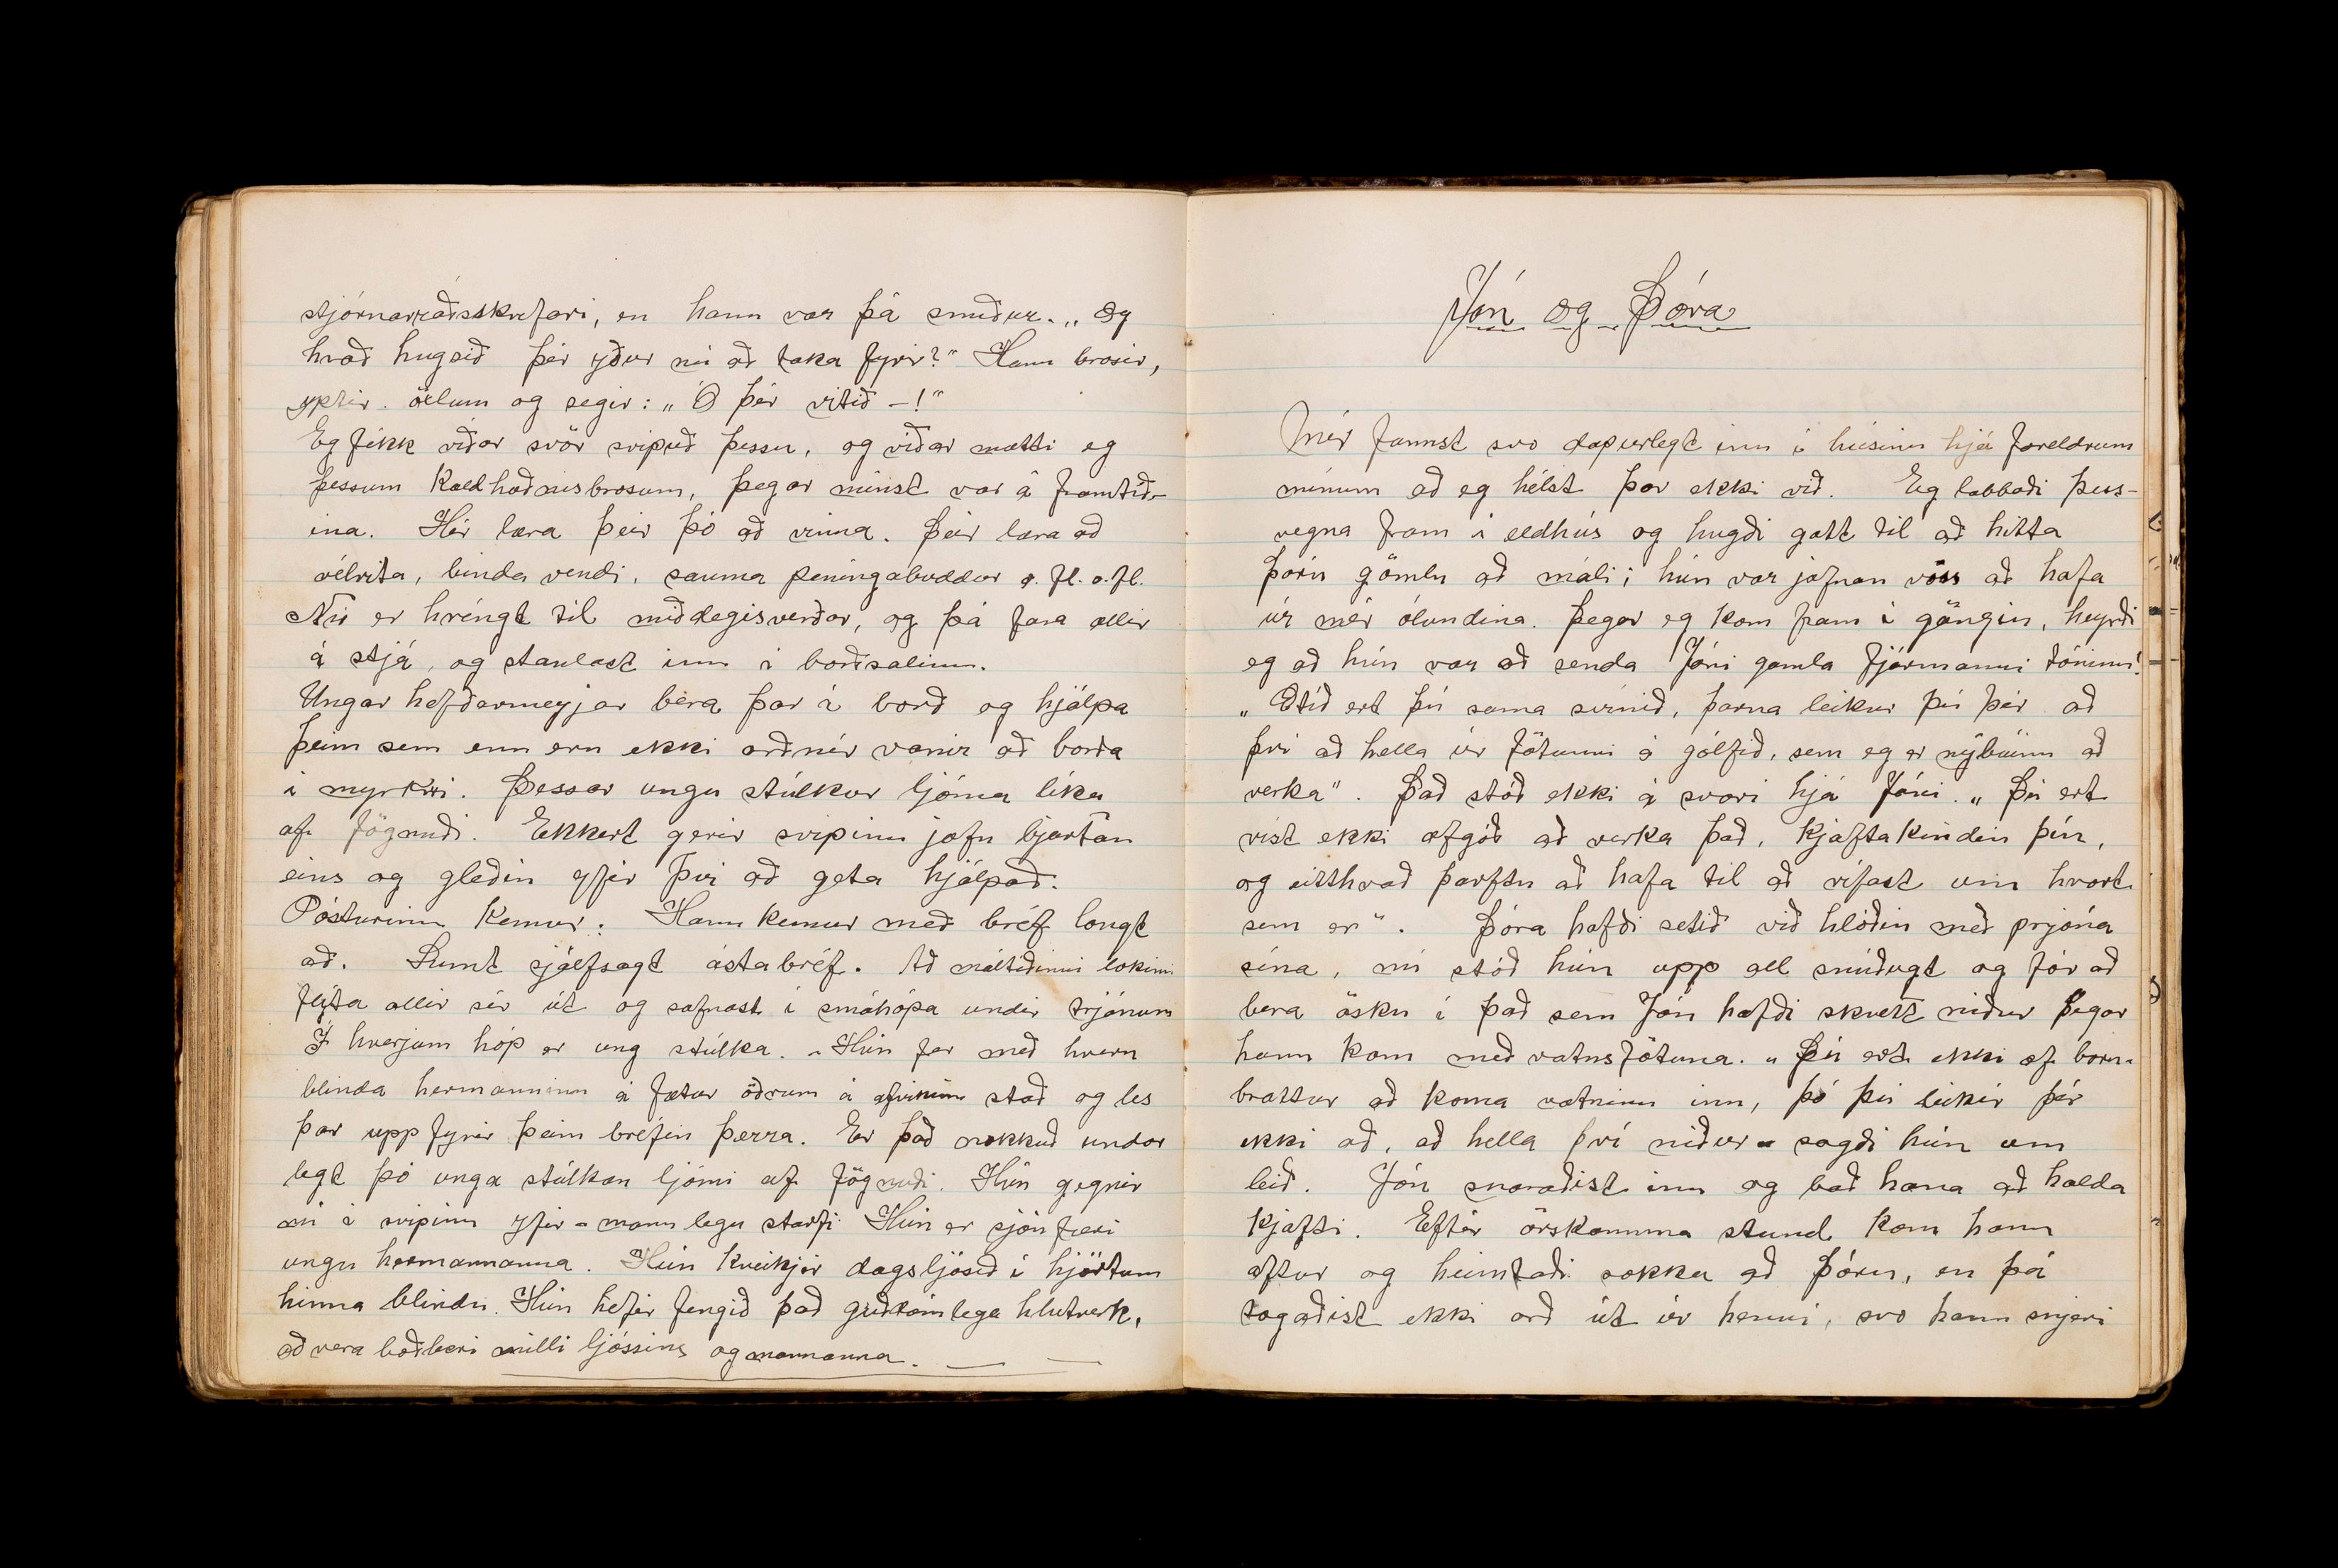 stjórnarráðsskrifari, en hann var þá smiður. „Og
hvað hugsið þér yður nú að taka fyrir?“ Hann brosir,
yptir öxlum og segir: „Ó þér vitið –!“
Eg fékk víðar svör svipuð þessu, og víðar mætti eg
þessum kaldhæðnisbrosum, þegar minst var á framtíð-
ina. Hér læra þeir þó að vinna. Þeir læra að
vélrita, binda vendi, sauma peningabuddur o.fl. o.fl.
Nú er hringt til miðdegisverðar, og þá fara allir
á stjá, og staulast inn í borðsalinn.
Ungar hefðarmeyjar bera þar á borð og hjálpa
þeim sem enn eru ekki orðnir vanir að borða
í myrkri. Þessar ungu stúlkur ljóma líka
af fögnuði. Ekkert gerir svipinn jafn bjartan
eins og gleðin yfir því að geta hjálpað.
Pósturinn kemur. Hann kemur með bréf langt
að. Sumt sjálfsagt ástabréf. Að máltíðinni lokinni
flýta allir sér út og safnast í smáhópa undir trjánum
Í hverjum hóp er ung stúlka. – Hún fer með hvern
blinda hermanninn á fætur öðrum á afvikinn stað og les
þar upp fyrir þeim bréfin þerra. Er það nokkuð undar
legt þó unga stúlkan ljómi af fögnuði. Hún gegnir
nú í svipinn yfir-mannlegu starfi. Hún er sjónfæri
ungu hermannanna. Hún kveikjir dagsljósið í hjörtum
hinna blindu. Hún hefir fengið það guðdómlega hlutverk,
að vera boðberi milli ljóssins og mannanna. — —
Jón og Þóra
Mér fannst svo dapurlegt inn í húsinu hjá foreldrum
mínum að eg hélst þar ekki við. Eg labbaði þess-
vegna fram í eldhús og hugði gott til að hitta
Þóru gömlu að máli; hún var jafnan vön að hafa
úr mér ólundina. Þegar eg kom fram í göngin, heyrði
eg að hún var að senda Jóni gamla fjármanni tóninn!
„Ætíð ert þú sama svínið, þarna leikur þú þér að
því að hella úr fötunni á gólfið, sem eg er nýbúinn að
verka“. Það stóð ekki á svari hjá Jóni. „Þú ert
víst ekki ofgóð að verka það, kjaftakindin þín,
og eitthvað þarftu að hafa til að rífast um hvort
sem er“. Þóra hafði setið við hlóðin með prjóna
sína, nú stóð hún upp all snúðugt og fór að
bera ösku í það sem Jón hafði skvett niður þegar
hann kom með vatnsfötuna. „Þú ert ekki of born-
brattur að koma vatninu inn, þó þú leikir þér
ekki að, að hella því niður“ sagði hún um
leið. Jón snaraðist inn og bað hana að halda
kjafti. Eftir örskamma stund kom hann
aftur og heimtaði sokka að Þóru, en þá
togaðist ekki orð út úr henni, svo hann snjeri